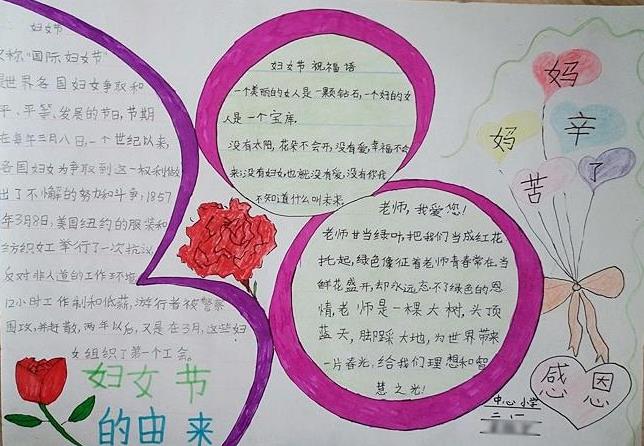 妇女节
又称"国际妇女节"
是世界各国妇女争取和
平、平等、发展的节日,节期
在每年三月八日,一个世纪以来,
各国妇女为争取到这一权利做
出了不懈的努力和斗争;1857
年3月8,美国纽约的服装和
纺织女工举行了一次抗议,
反对非人道的工作环境
12小时工作制和低薪,游行者被警察
围攻,并赶散,两年以后,又是在3月,这些妇
女组织了第一个工会。
妇女节
的由来
妇女节祝福语
一个美丽的女人是一颗钻石,一个好的女
人是一个宝库。
没有太阳,花朵不会开;没有爱,幸福不会
来;没有妇女,也就没有爱,没有你我
不知道什么叫未来。
老师,我爱您!
老师甘当绿叶,把我们当成红花
托起,绿色像征着老师青春常在,当
鲜花盛开,却永远忘不了绿色的恩
情,老师是一棵大树,头顶
蓝天,脚踩大地,为世界带来
一片春光,给我们理想和智
慧之光!
妈
妈
辛
苦
了
感恩
中心小学
二、1